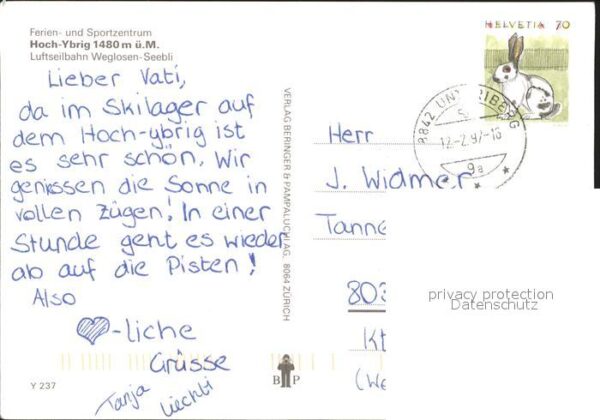 Ferien- und Sportzentrum
Hoch-Ybrig 1480 m ü.M.
Luftseilbahn Weglosen-Seebli
Lieber Vati,
da im Skilager auf
dem Hoch-ybrig ist
es sehr schön. Wir
geniessen die Sonne in
vollen Zügen! In einer
Stunde geht es wieder
ab auf die Pisten!
Also
-liche
Grüsse
Tanja
Y 237
VERLAG BERINGER & PAMPALUCHI AG, 8064 ZÜRICH
B P
HELVETIA 70
8842 UNTERIBERG
12-2.97-16
9a
Herr
J. Widmer
Tanne
803
(We
privacy protection
Datenschutz